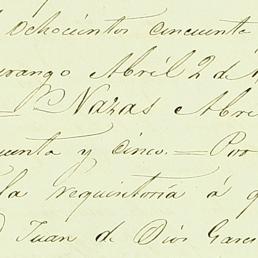 ochocientos cincuenta
urango Abril 2 de
Nazas Abri
uenta y cinco. — Por
la requisitoria á q
Juan de Dios Garc